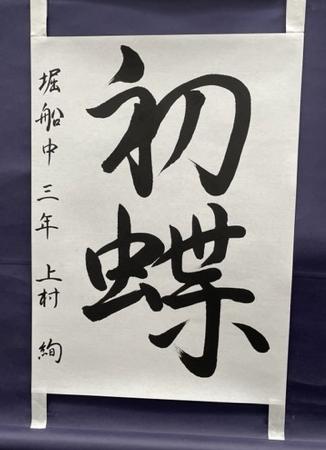 初蝶
堀船中 三年 上村 絢